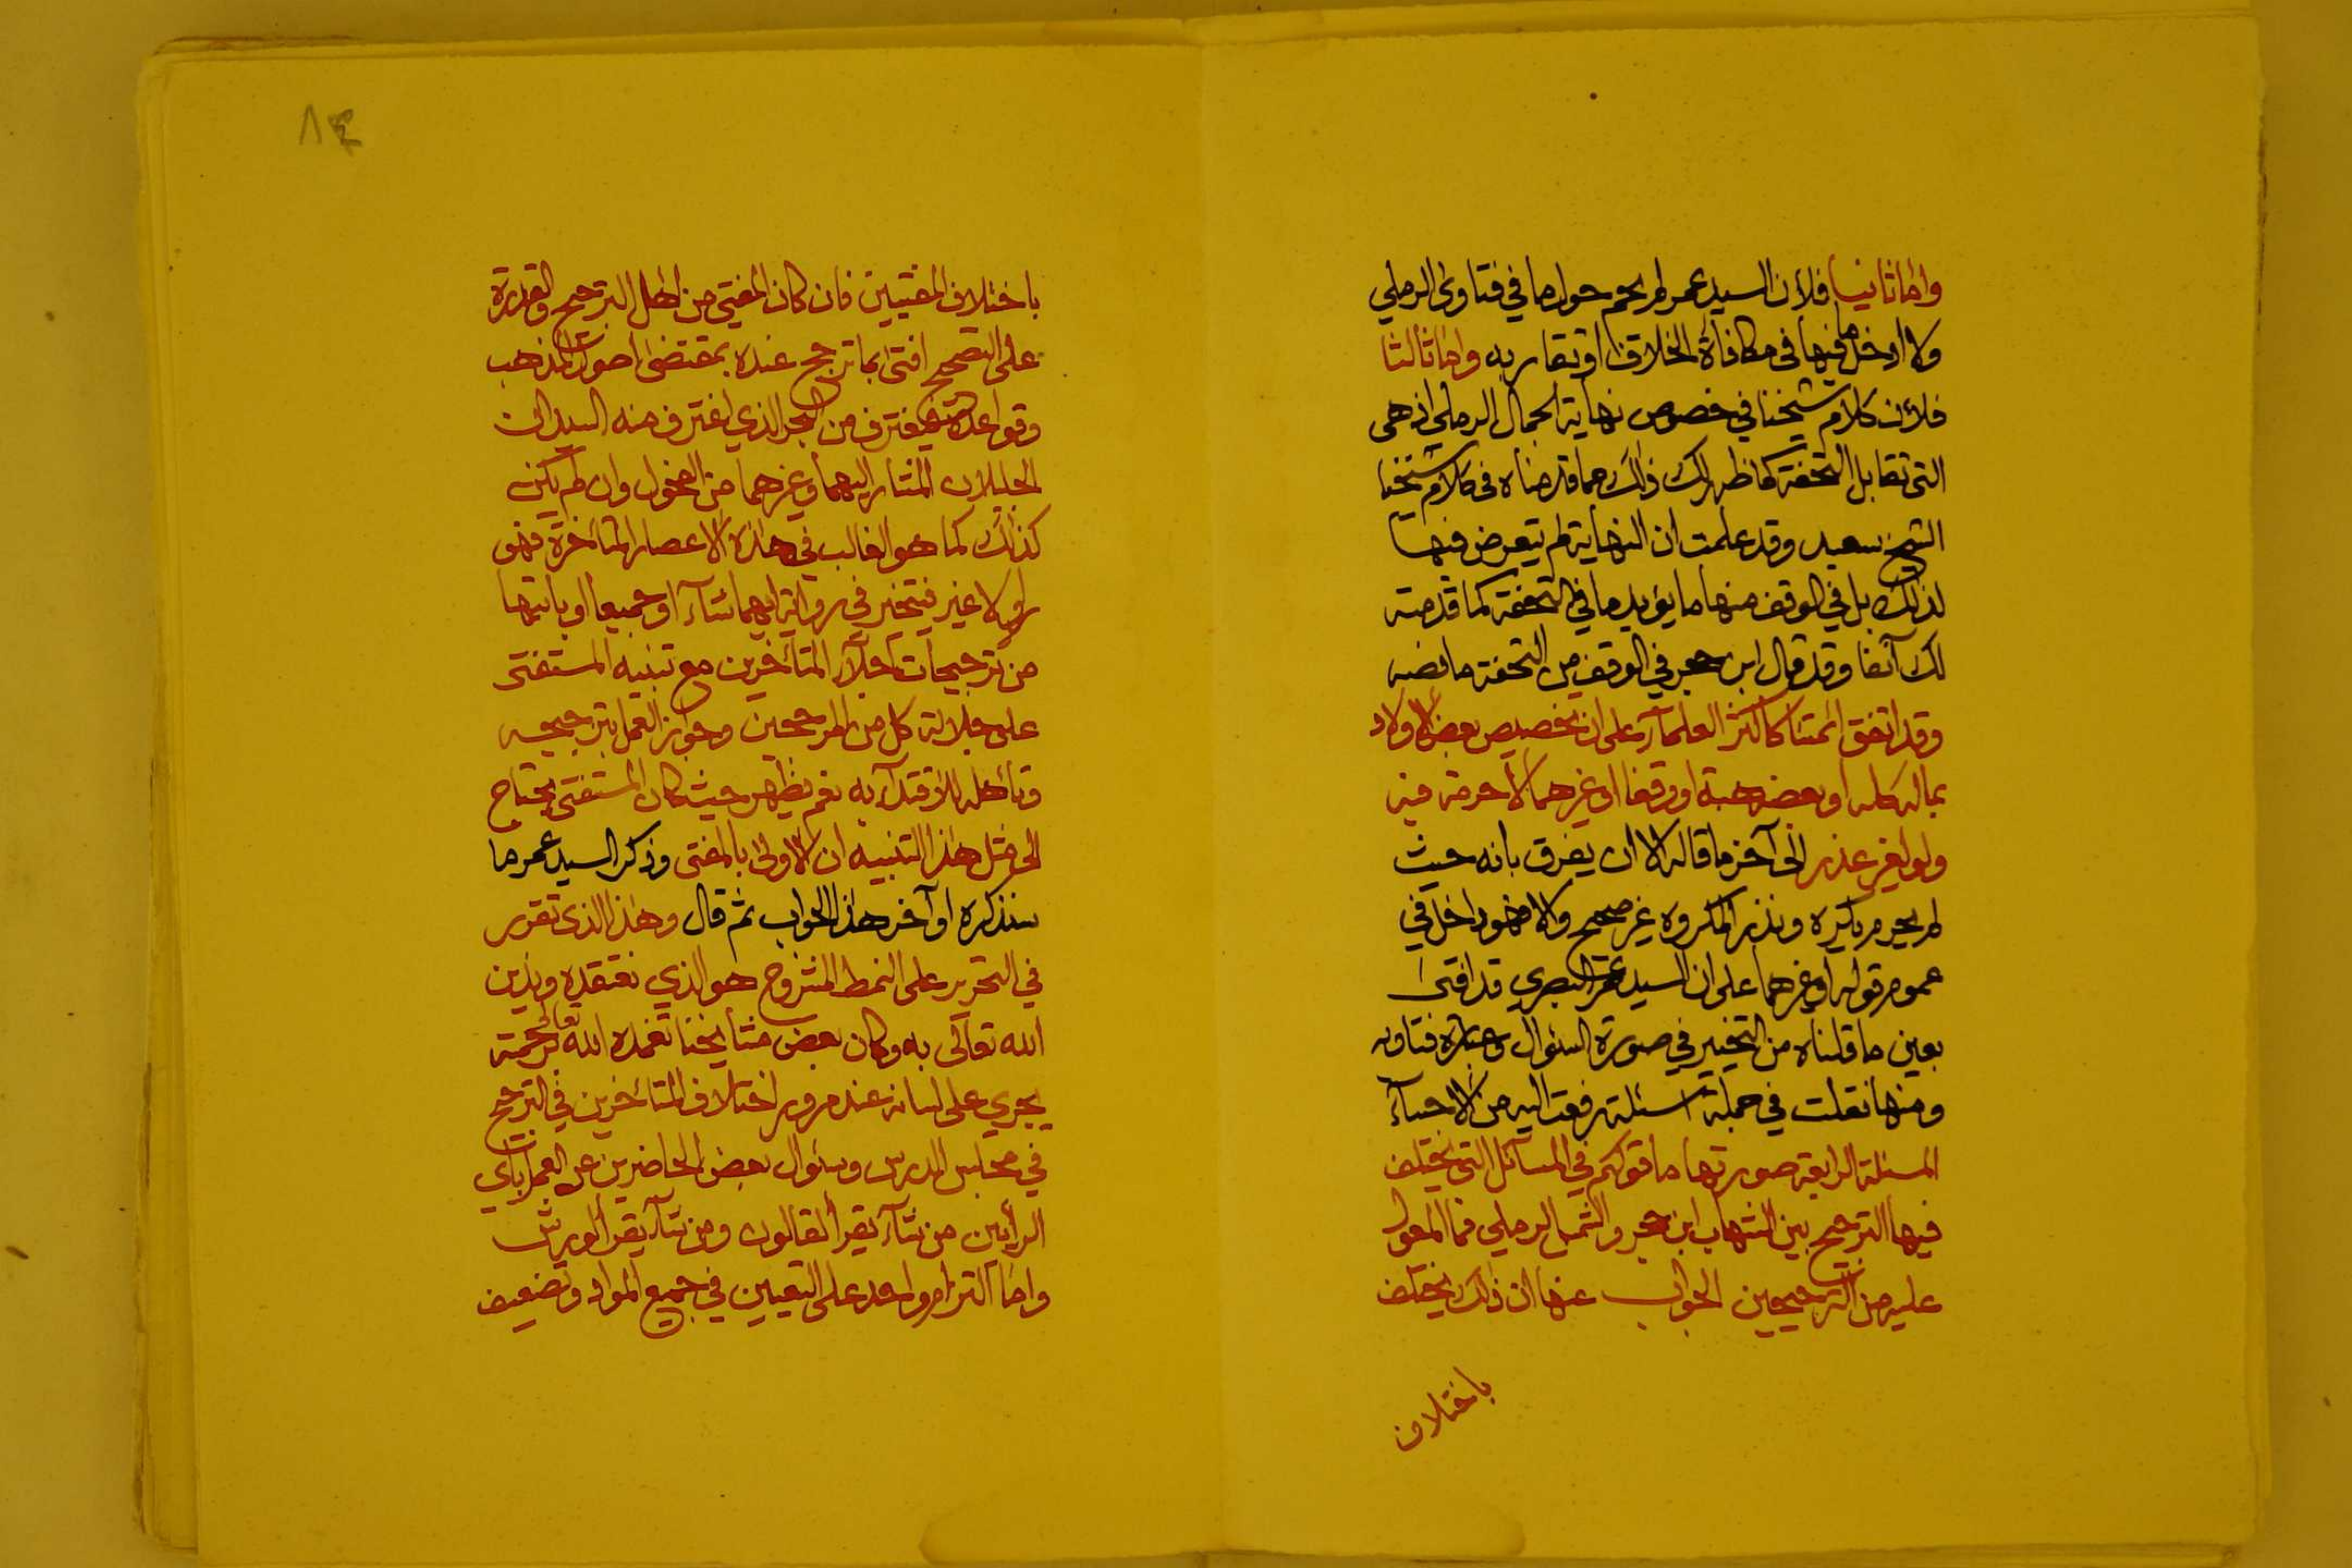 واما ثانيا فلأن السيد عمر لم يحم حول ما في فتاوى الرملي
ولا ادخل ما فيها في مكافأة الخلاف او تقاربه واما ثالثا
فلأن كلام شيخنا في خصوص نهاية الجمال الرملي اذ هي
التي تقابل التحفة كما ظهر لك ذلك مما قدمناه في كلام شيخنا
الشيخ سعيد وقد علمت ان النهاية لم يتعرض فيها
لذلك بل في الوقف منها ما يؤيد ما في التحفة كما قدمته
لك آنفا وقد قال ابن حجر في الوقف من التحفة ما نصه
وقد اتفق ائمتنا كاكثر العلمآء على ان تخصيص بعض الاولاد
بماله كله او بعضه هبة او وقفا او غيرهما لا حرمة فيه
ولو لغير عذر الى آخر ما قاله الا ان يفرق بانه حيث
لم يحرم يكره ونذر المكروه غير صحيح والا فهو داخل في
عموم قوله او غيرهما على ان السيد عمر البصري قد افتى
بعين ما قلناه من التخيير في صورة السئوال وعبارة فتاويه
ومنها نقلت في جملة اسئلة رفعت اليه من الاحسآء
المسئلة الرابعة صورتها ما قولكم في المسآئل التي يختلف
فيها الترجيح بين الشهاب ابن حجر والشمس الرملي فما المعول
عليه من الترجيحين الجواب عنها ان ذلك يختلف
باختلاف
٨٤
باختلاف المفتيين فان كان المفتي من اهل الترجيح والقدرة
على التصحيح افتى بما ترجح عنده بمقتضى اصول المذهب
وقواعده فيغترف من البحر الذي اغترف منه السيدان
الجليلان المشار اليهما وغيرهما من الفحول وان لم يكن
كذلك كما هو الغالب في هذه الاعصار المتأخرة فهو
راو لا غير فيتخير في رواية ايهما شآء او جميعا او بايتها
من ترجيحات اجلآء المتأخرين مع تنبيه المستفتى
على جلالة كل من المرجحين وجواز العمل بترجيحه
وتأهله للاقتدآء به نعم يظهر حيث كان المستفتى يحتاج
الى مثل هذا التنبيه ان الاولى بالمفتى وذكر السيد عمر ما
سنذكره اوآخر هذا الجواب ثم قال وهذا الذى تقرر
في التحرير على النمط المشروح هو الذي نعتقده وندين
الله تعالى به وكان بعض مشآيخنا تغمده الله تعالى برحمته
يجري على لسانه عند مرور اختلاف المتأخرين في الترجيح
في مجلس الدرس وسئوال بعض الحاضرين عن العمل باي
الرأيين من شآء يقرأ لقالون ومن شآء يقرأ لورش
واما التزام واحد على التعيين في جميع المواد وتضعيف